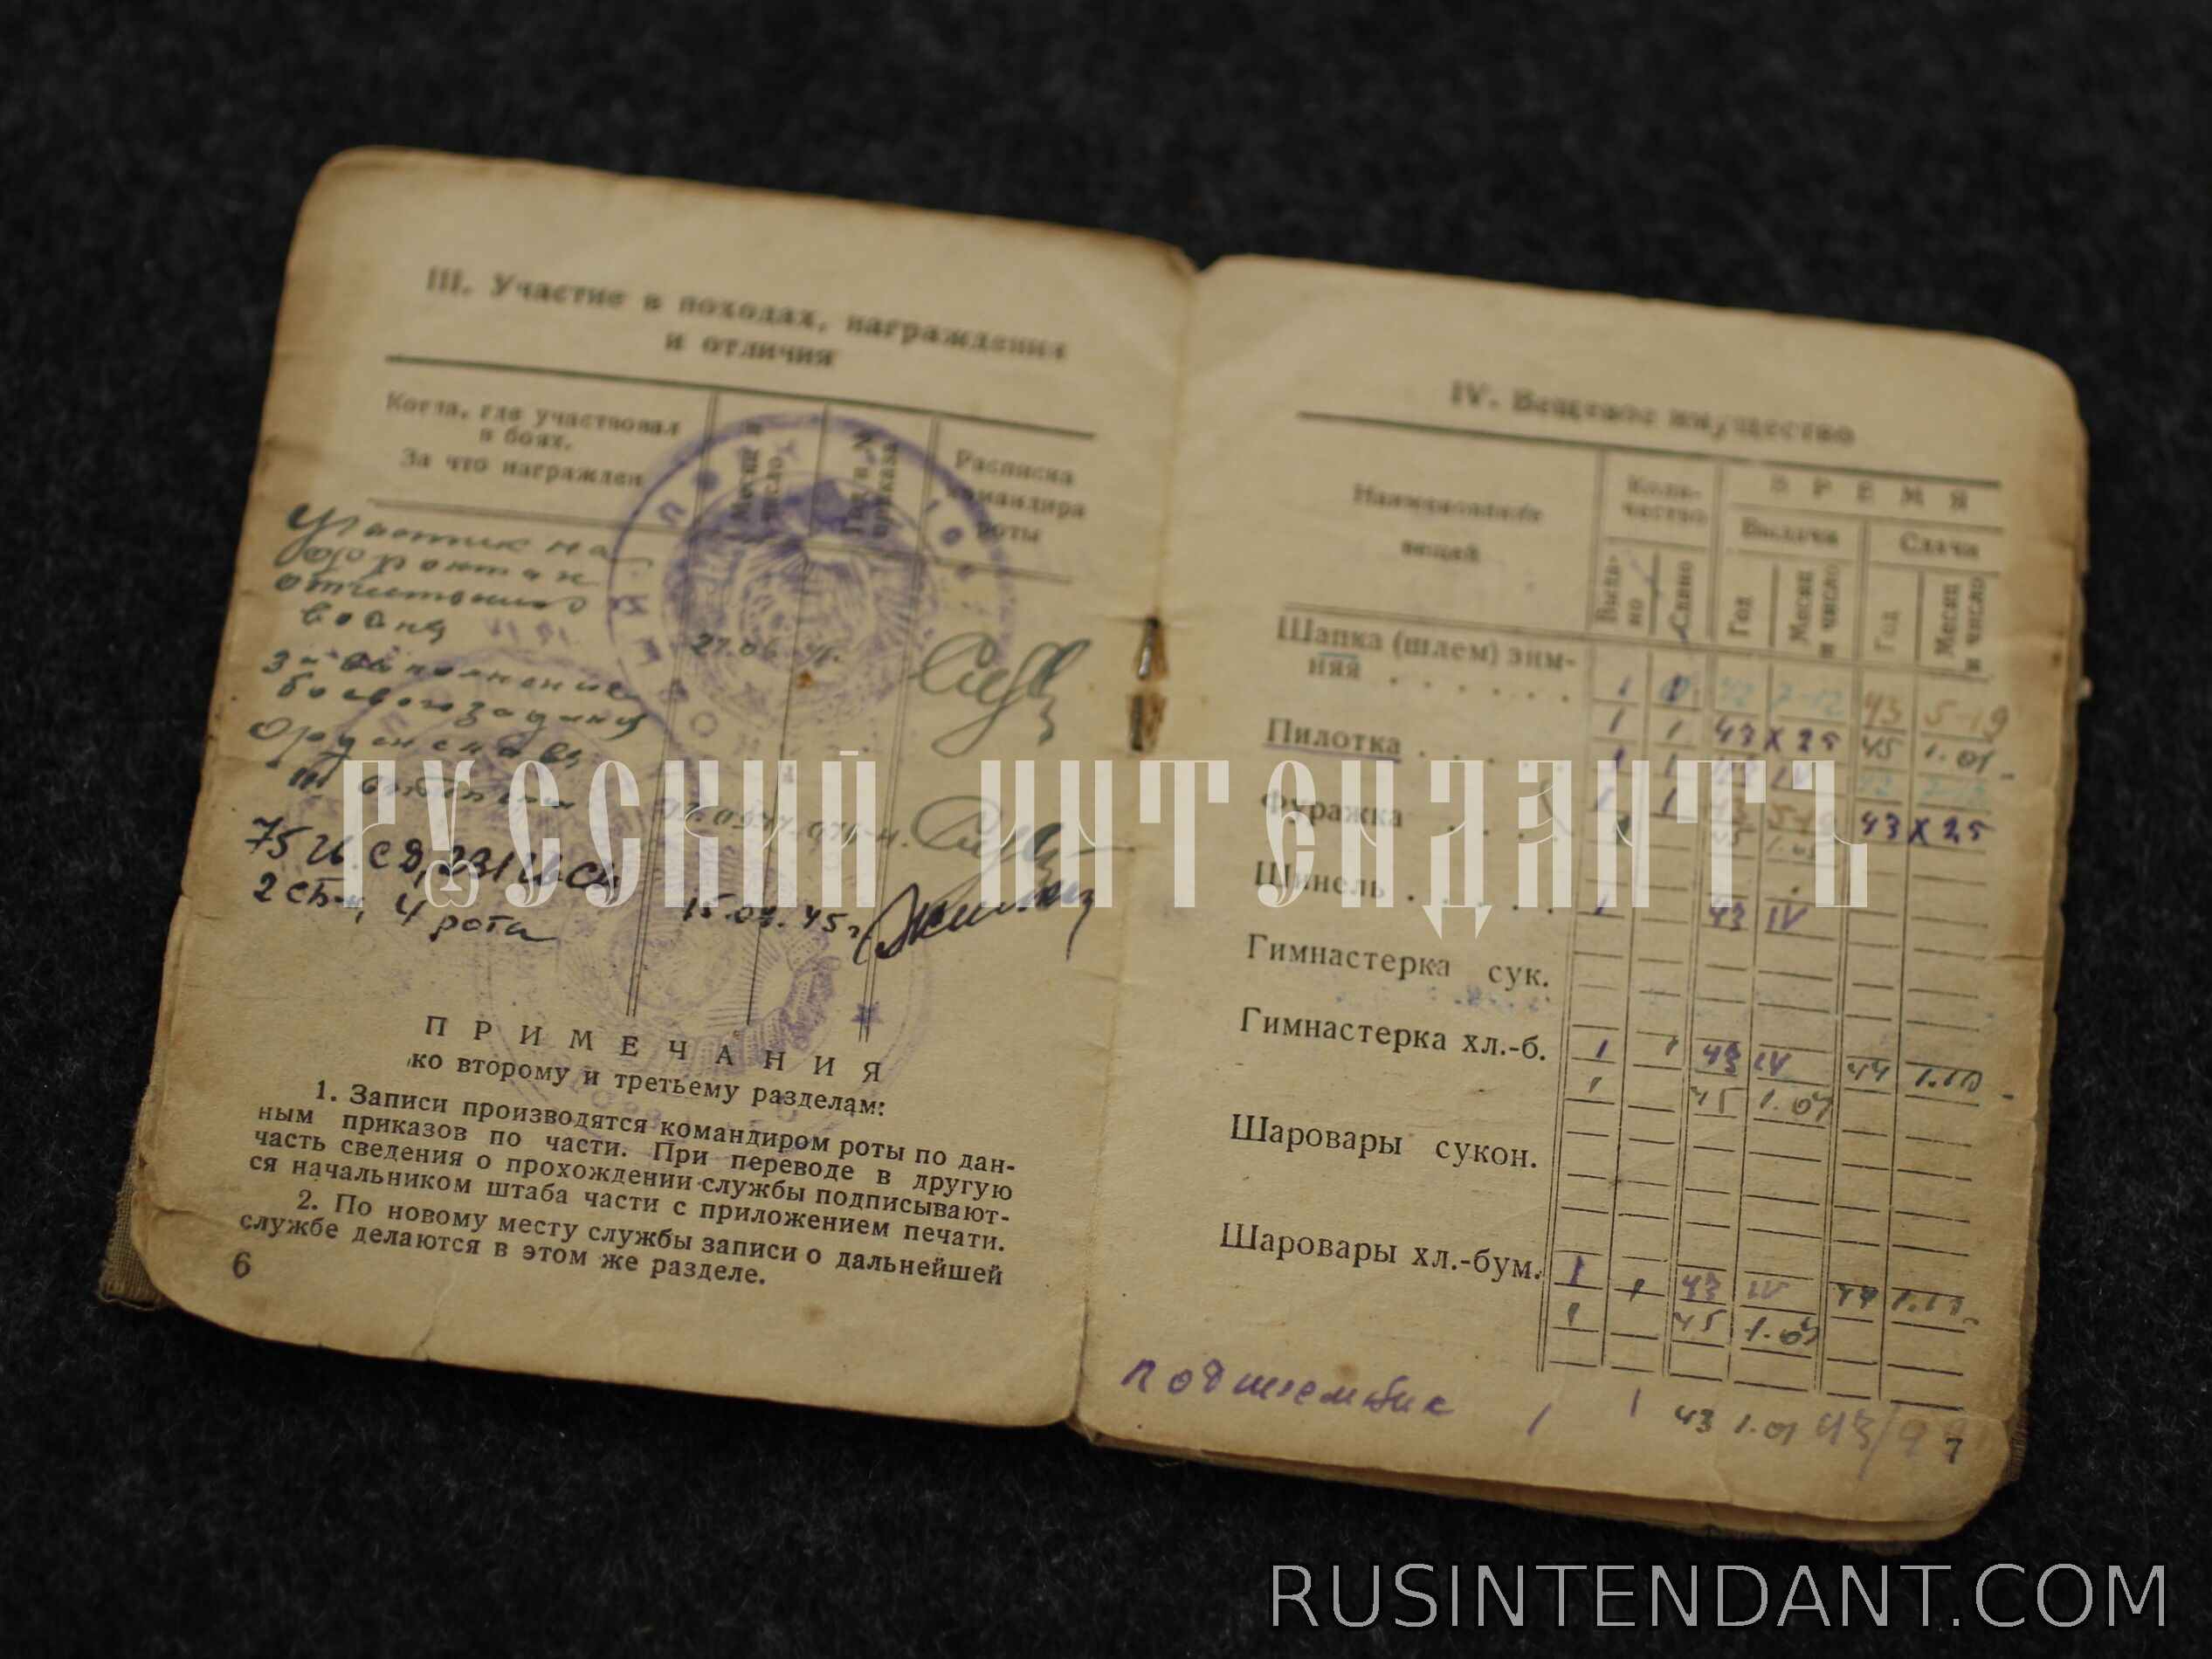 III. Участие в походах, награждения
и отличия
Когда, где участвовал
в боях.
За что награжден
Месяц и
число
Год и №
приказа
Расписка
командира
роты
Участник на
фронтах
войны
27.06.
за выполнение
боевого задания
75 и. СД, 231 и СП
2 сб-н, 4 рота
15.07.45г.
ПРИМЕЧАНИЯ
ко второму и третьему разделам:
1. Записи производятся командиром роты по дан-
ным приказов по части. При переводе в другую
часть сведения о прохождении службы подписывают-
ся начальником штаба части с приложением печати.
2. По новому месту службы записи о дальнейшей
службе делаются в этом же разделе.
6
IV. Вещевое имущество
Наименование
вещей
Коли-
чество
ВРЕМЯ
Выдачи
Сдачи
Выда-
но
Сдано
Год
Месяц
и число
Год
Месяц
и число
Шапка (шлем) зим-
няя . . . . . . . 1 1 42 7-12 43 5-19
Пилотка . . . . . 1 1 43 X 25 45 1.07
1 1 43 IV
Фуражка . . . . 1 1 43 X 25
Шинель . . . . . 1 43 IV
Гимнастерка сук.
Гимнастерка хл.-б. 1 1 43 IV 44 1.10
1 45 1.07
Шаровары сукон.
Шаровары хл.-бум. 1 1 43 IV 44 1.10
1 45 1.07
подшлемник 1 1 43 1.01 43
7
РУССКИЙ ИНТЕНДАНТЪ
RUSINTENDANT.COM